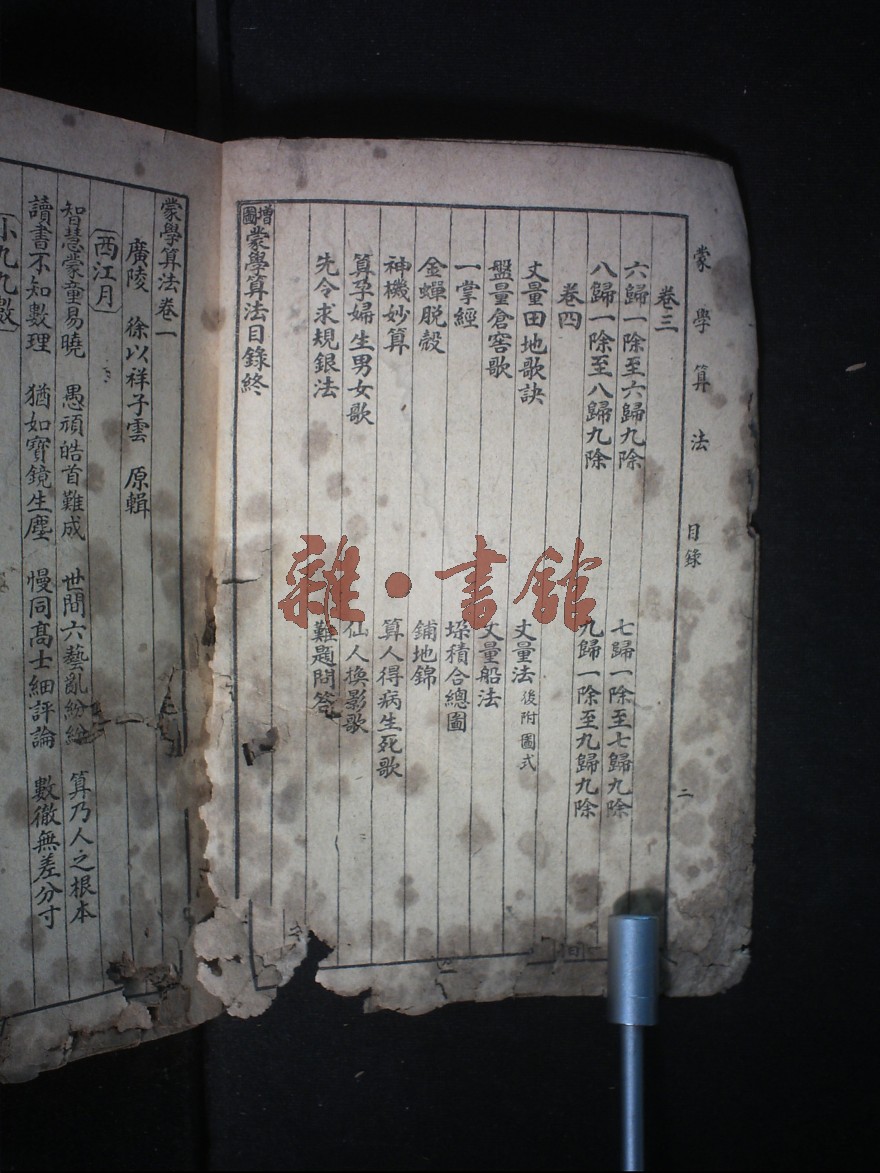 蒙學算法　目錄　二
卷三
六歸一除至六歸九除　七歸一除至七歸九除
八歸一除至八歸九除　九歸一除至九歸九除
卷四
丈量田地歌訣　丈量法後附圖式
盤量倉窖歌　丈量船法
一掌經　垛積合總圖
金蟬脱殼　鋪地錦
神機妙算　算人得病生死歌
算孕婦生男女歌　仙人換影歌
先令求規銀法　難題問答
增圖蒙學算法目錄終
蒙學算法卷一
廣陵　徐以祥子雲　原輯
西江月
智慧蒙童易曉　愚頑皓首難成　世間六藝亂紛紛　算乃人之根本
讀書不知數理　猶如寶鏡生塵　慢同高士細評論　數徹無差分寸
小九九數
雜·書館